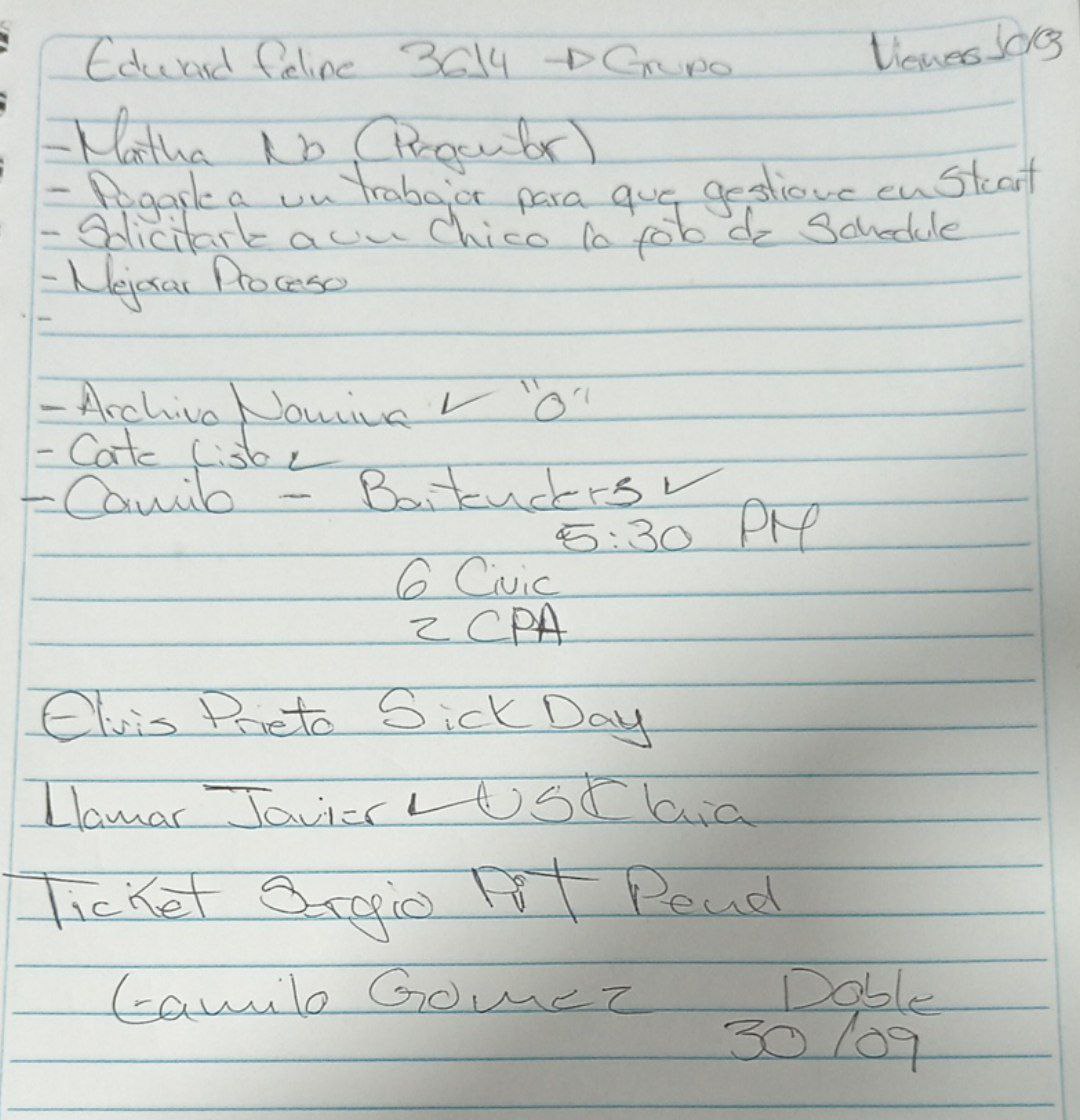 Edward Feline 3614 → Grupo Viernes 10/3
- Martha No (Preguntar)
- Pagarle a un trabajor para que gestione en Steart
- Solicitarle a un Chico la foto de Schedule
- Mejorar Proceso
-
- Archivo Nomina ✓ "0"
- Carte Listo ✓
- Camilo - Bartenders ✓
5:30 PM
6 Civic
2 CPA
Elvis Prieto Sick Day
Llamar Javier ✓ US
Ticket Sergio Pend
Camilo Gomez Doble
30/09